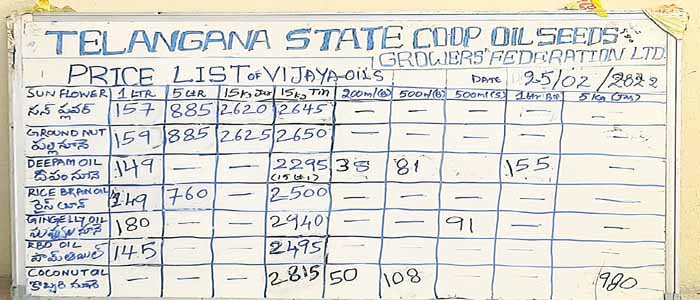 TELANGANA STATE COOP OIL SEEDS
GROWERS' FEDERATION LTD
PRICE LIST OF VIJAYA-OILS DATE 25/02/2022
SUN FLOWER 1 LTR 5 LTR 15Kg Jar 15 Kg Tin 200ml(B) 500ml(B) 500ml(S) 1 Ltr 5 Kg (Jar)
సన్ ఫ్లవర్ 157 885 2620 2645 — — — — —
GROUND NUT
పల్లి నూనె 159 885 2625 2650 — — — — —
DEEPAM OIL 149 — — 2295 38 81 — 155 —
దీపం నూనె (15 Lt.)
RICE BRAN OIL
రైస్ 149 760 — 2500 — — — — —
GINGELLY OIL
నువ్వుల నూనె 180 — — 2940 — — 91 — —
RBD OIL
పామాయిల్ 145 — — 2495 — — — — —
COCONUT OIL
కొబ్బరి నూనె — — — 2815 50 108 — — 980